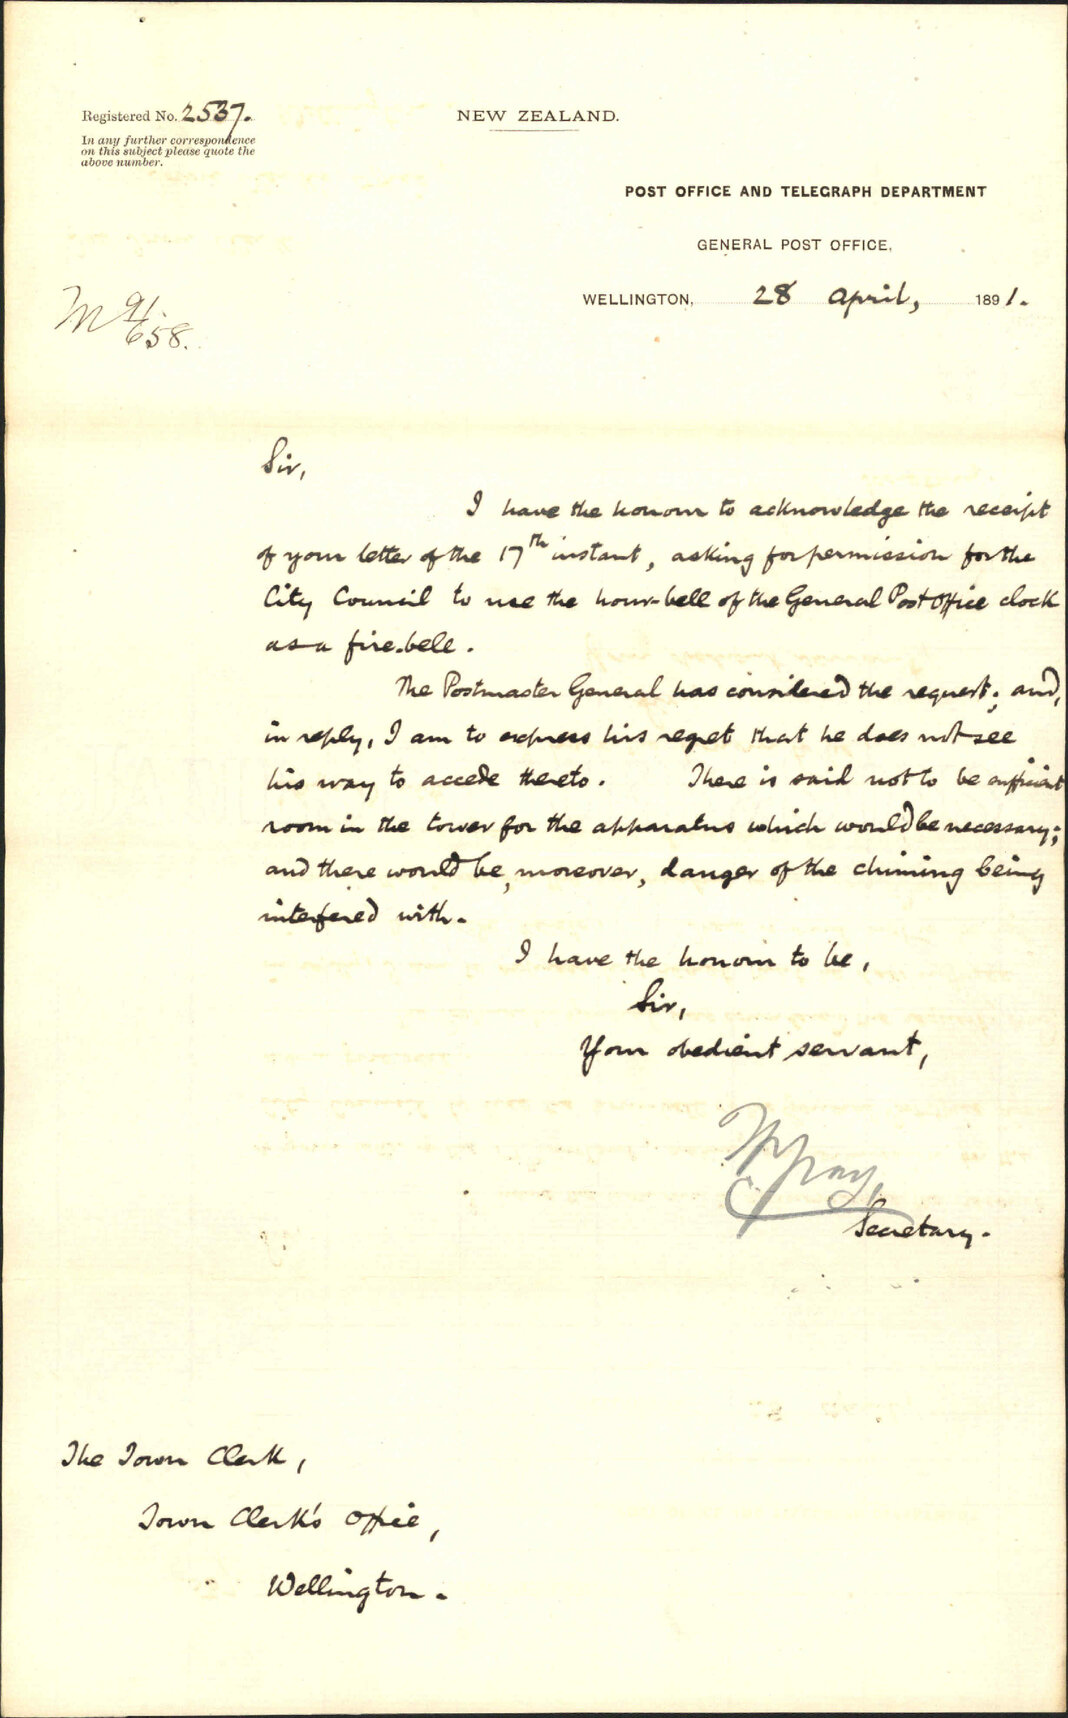 Registered No. 2537.
In any further correspondence
on this subject please quote the
above number.
NEW ZEALAND.
POST OFFICE AND TELEGRAPH DEPARTMENT
GENERAL POST OFFICE,
WELLINGTON, 28 April, 1891.
M 91/658.
Sir,
I have the honour to acknowledge the receipt
of your letter of the 17th instant, asking for permission for the
City Council to use the hour-bell of the General Post Office clock
as a fire-bell.
The Postmaster General has considered the request; and,
in reply, I am to express his regret that he does not see
his way to accede thereto. There is said not to be sufficient
room in the tower for the apparatus which would be necessary;
and there would be, moreover, danger of the chiming being
interfered with.
I have the honour to be,
Sir,
Your obedient servant,
W Gray,
Secretary.
The Town Clerk,
Town Clerk's Office,
Wellington.